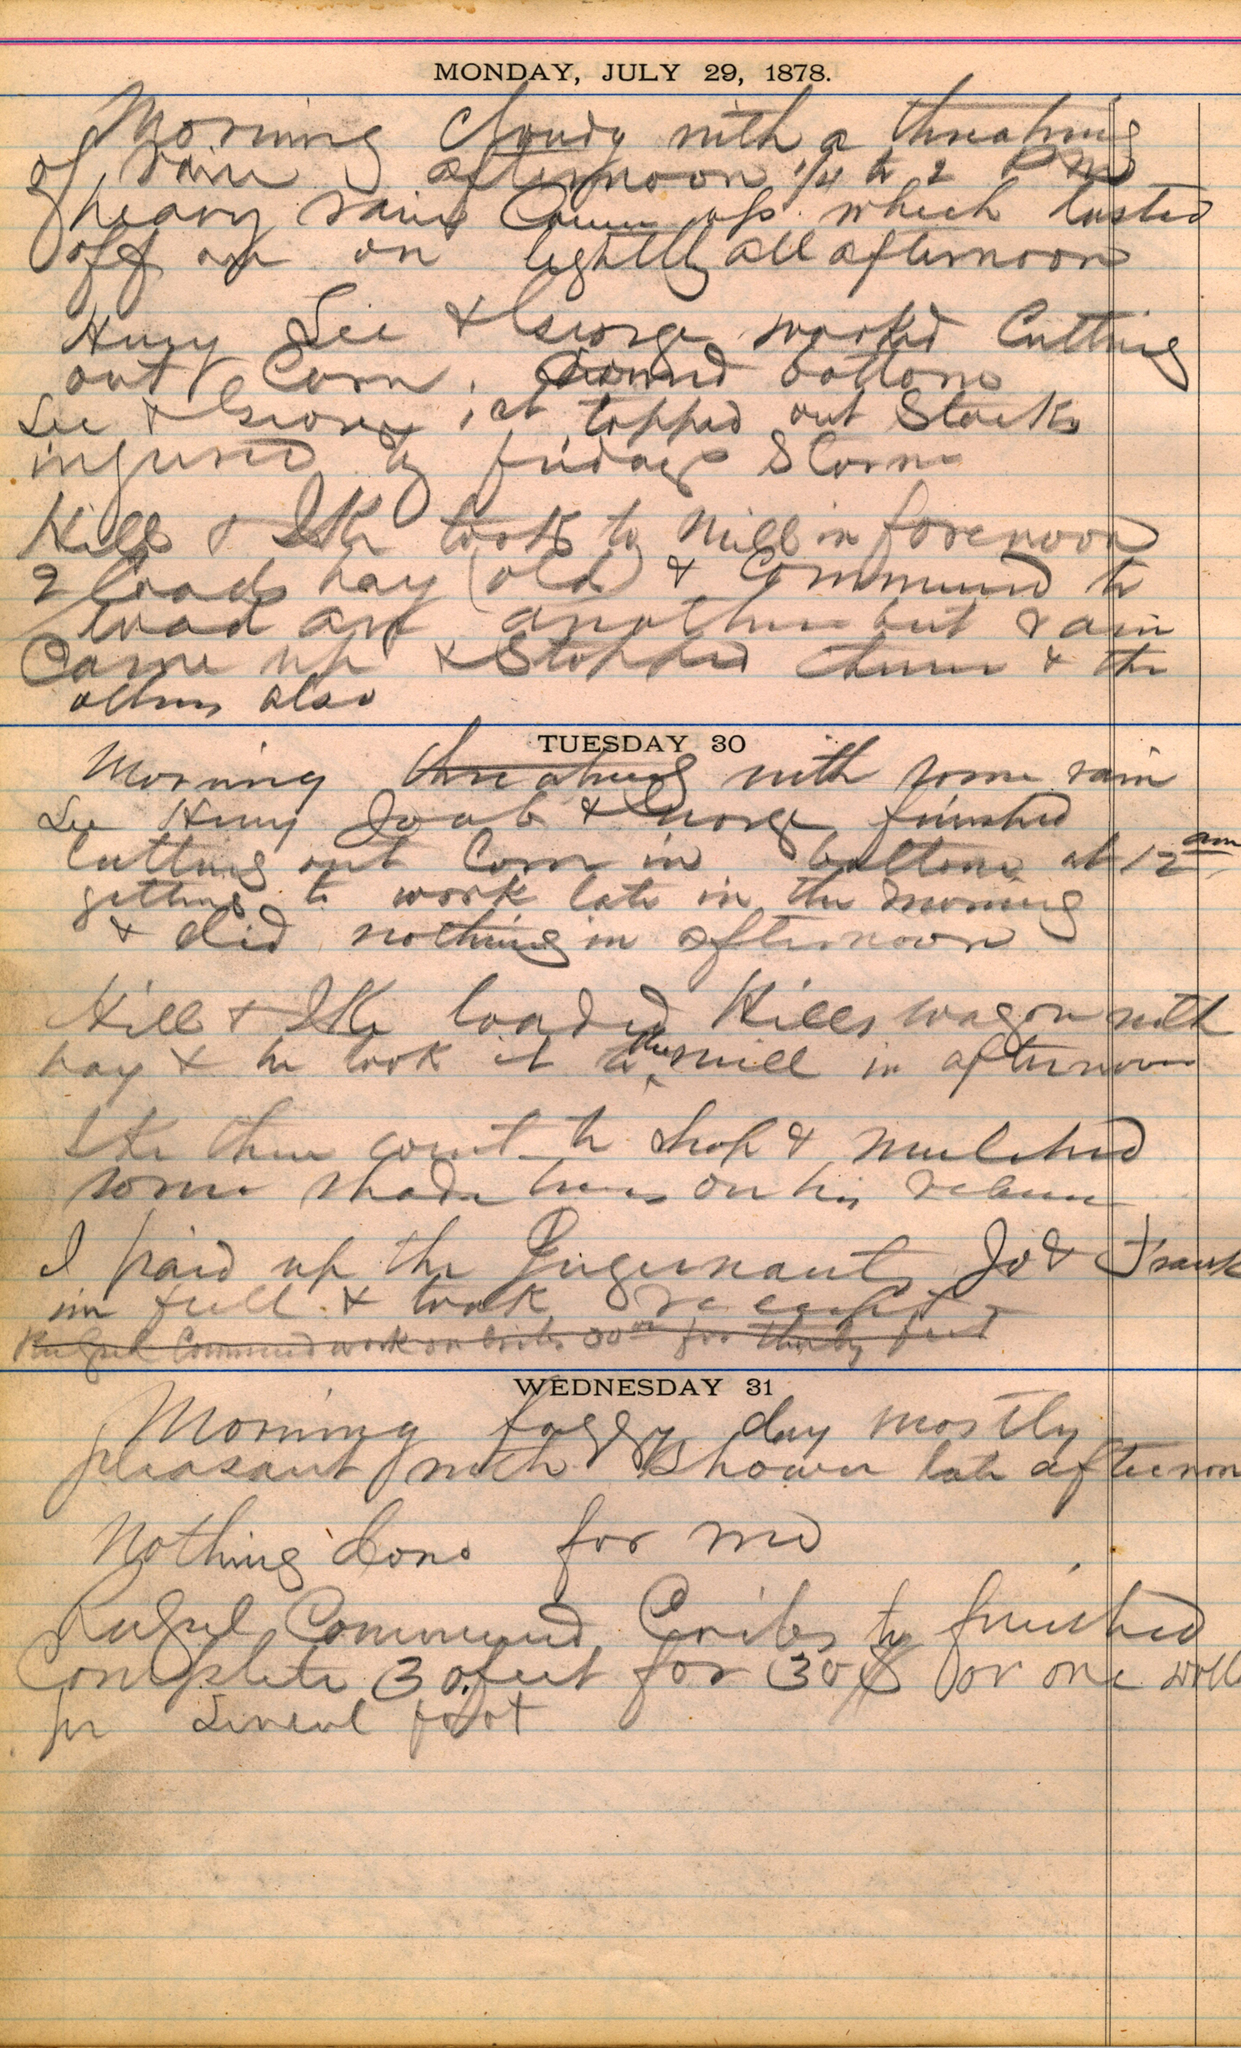 MONDAY, JULY 29, 1878.
Morning Cloudy with a threatning
of rain afternoon 1/4 to 2 P M
heavy rain Came up which lasted
off an on lightly all afternoon
Henry Lee & George worked Cutting
out Corn. bottom
Lee & George 1st topped out Stacks
injured by fridays Storm
Hill & Ike took to Mill in forenoon
2 loads hay (old) & Commenced to
load another but rain
Came up & Stopped them & the
others also
TUESDAY 30
Morning threatning with some rain
Lee Henry Joab & George finished
Cutting out Corn in bottom at 12 am
getting to work late in the morning
& did nothing in afternoon
Hill & Ike loaded Hills wagon with
hay & he took it to the mill in afternoon
Ike then went to shop & mulched
some shade trees on his return
I paid up the Jo & Frank
in full & took receipt
Commenced work on Cribs 30 for thirty feet
WEDNESDAY 31
Morning foggy day mostly
pleasant with Shower late afternoon
Nothing done for me
Commenced Cribs to finished
Complete 30 feet for 30$ or one doll
per Lineal foot